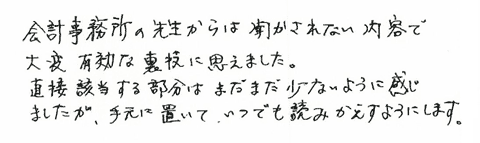 会計事務所の先生からは聞かされない内容で
大変有効な裏技に思えました。
直接該当する部分はまだまだ少ないように感じ
ましたが、手元に置いて、いつでも読みかえすようにします。